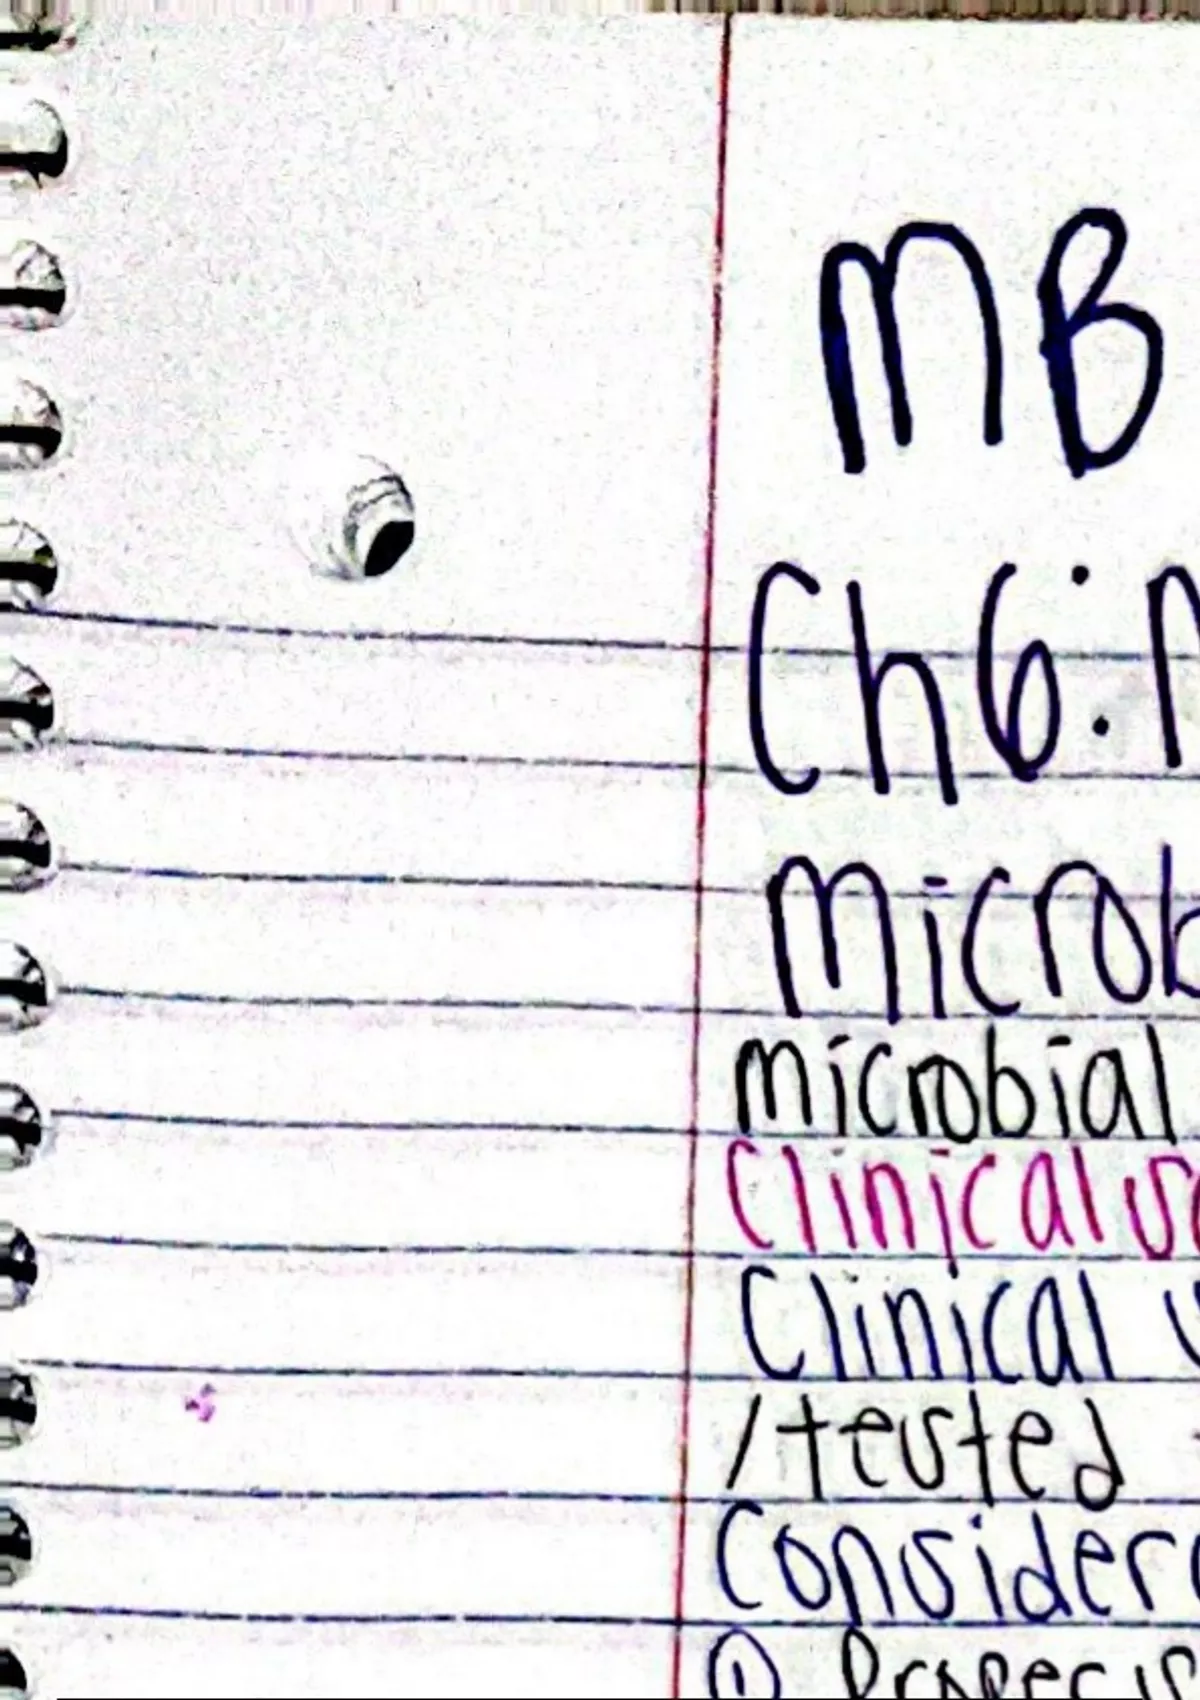 MB
Ch6:
Microb
microbial
Clinical
Clinical
/tested
Consider
①